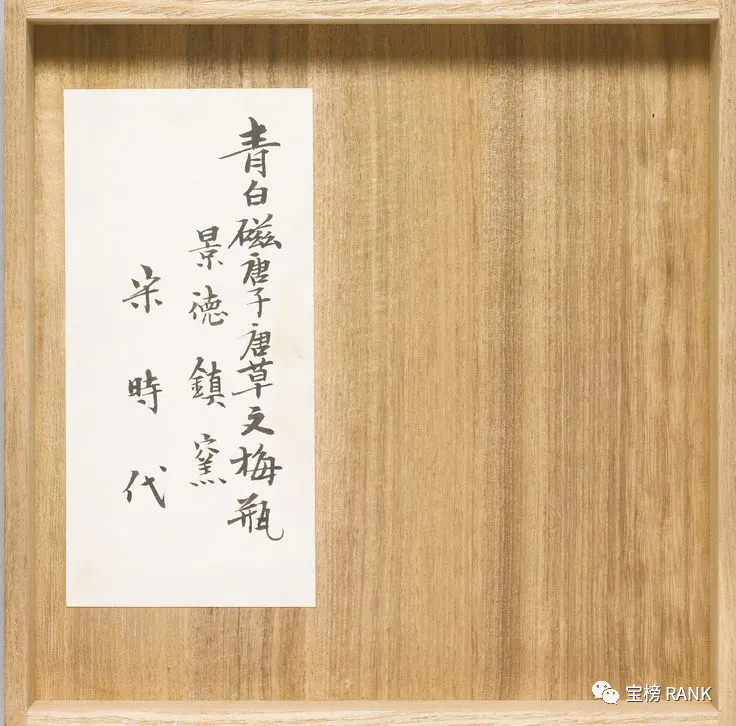 青白磁唐子唐草文梅瓶
景德鎮窯
宋時代
宝榜 RANK